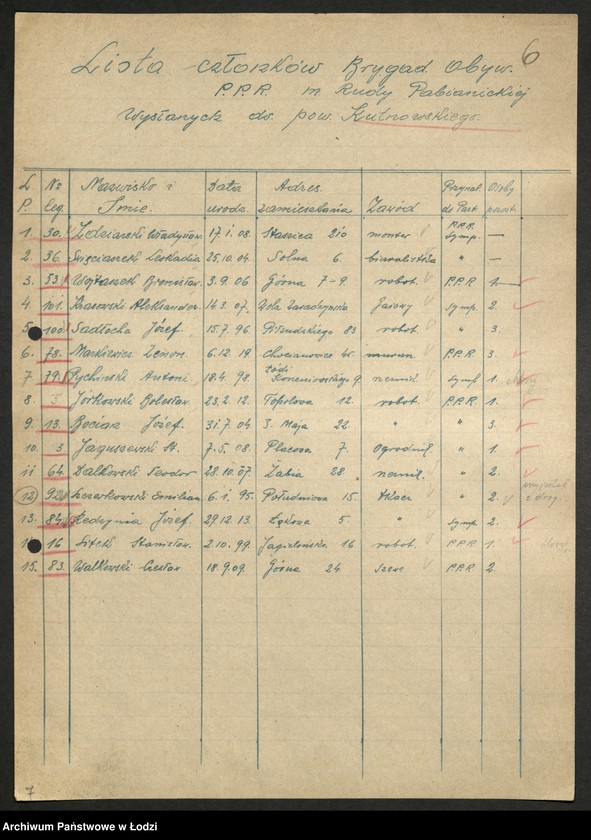 6
Lista członków Brygad Obyw.
P.P.R. m. Rudy Pabianickiej
Wysłanych do pow. Kutnowskiego.
L. P. № leg. Nazwisko i Imię. Data urodz. Adres zamieszkania Zawód Przynal. do Part. Osoby
1. 30. Władysław. 17.1.08. Staszica 210 monter P.P.R. Symp. —
2. 36. Święcianek Leokadia 25.10.04 Solna 6. " —
3. 53 Wojtaszek Bronisław. 3.9.06 Górna 7-9. robot. P.P.R. 1.
4 101. Aleksander. 14.3.07. Wola symp. 2.
5. 100. Sadłocha Józef. 15.7.96 Piłsudskiego 83 robot. " 3.
6. 78. Markiewicz Zenon. 6.12.19. Chocianowice 45. P.P.R. 3.
7 79. Rychiński Antoni 18.4.98. Łódź 9. symp. 1.
8. Bolesław. 23.2.12. Topolowa 12. robot. P.P.R. 1.
9. 13. Bociak Józef. 31.7.04 3. Maja 22 " " 3.
10. 3 Jaguszewski St. 7.5.08. Placowa 7. Ogrodnik. " 1.
11 64. Dalkowski Teodor 28.10.07. Żabia 28 " 2.
12) 92 Emilian 6.1.95 Południowa 15 tkacz " 2.
13. 84 Józef. 29.12.13. Łąkowa 5. " symp. 2.
16 Stanisław. 2.10.99. Jagielońska 16 robot. P.P.R. 1.
15. 83. Walkowski Czesław 18.9.09. Górna 24 szewc P.P.R. 2.
7
Archiwum Państwowe w Łodzi